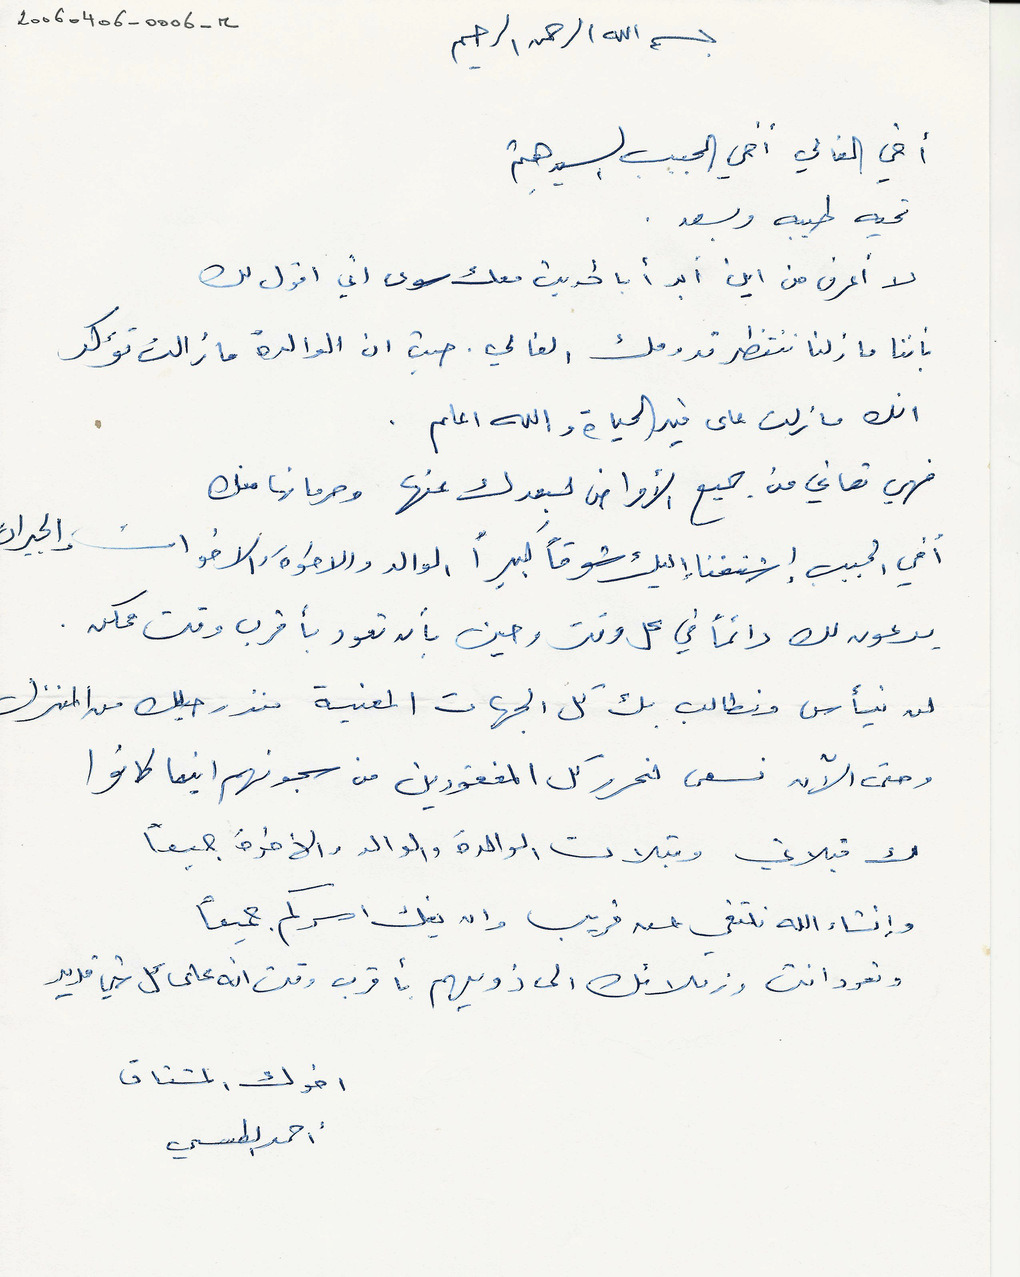 20060406-0006-M
بسم الله الرحمن الرحيم
أخي الغالي أخي الحبيب
تحيه طيبه وبعد .
لا أعرف من اين أبدأ بالحديث معك سوى اني اقول لك
باننا مازلنا ننتظر قدومك الغالي . حيث ان الوالدة مازالت تؤكد
انك مازلت على قيد الحياة والله اعلم .
فهي تعاني من جميع الأمراض لبعدك عنها وحرمانها منك
أخي الحبيب إشتقنا إليك شوقاً كبيراً الوالد والاخوة والاخوات والجيران
يدعون لك دائماً في كل وقت وحين بأن تعود بأقرب وقت ممكن .
لن نيأس ونطالب بك كل الجهات المعنية منذ رحيلك من المنزل
وحتى الآن نسعى لنحرر كل المفقودين من سجونهم اينما كانوا
لك قبلاتي وقبلات الوالدة والوالد والأخوة جميعاً
وإنشاء الله نلتقي عن قريب وان يفك اسركم جميعاً
وتعود انت وزملائك الى ذويهم بأقرب وقت انه على كل شيء قدير
اخوك المشتاق
أحمد